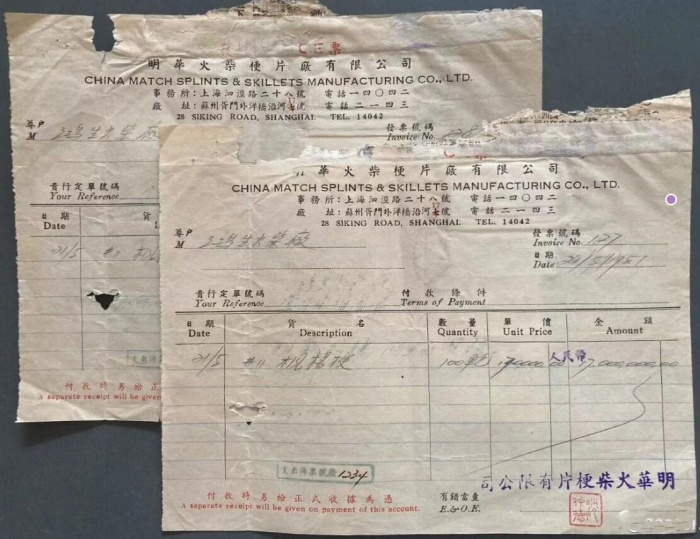 三票
明華火柴梗片廠有限公司
CHINA MATCH SPLINTS & SKILLETS MANUFACTURING CO., LTD.
事務所：上海泗涇路二十八號 電話一四〇四二
廠址：蘇州胥門外洋橋沿河七號 電話二一四三
28 SIKING ROAD, SHANGHAI TEL. 14042
台戶
M
發票號碼
Invoice No.
貴行定單號碼
Your Reference
日期
Date
貨
21/5
付款時另給正
A separate receipt will be given
明華火柴梗片廠有限公司
CHINA MATCH SPLINTS & SKILLETS MANUFACTURING CO., LTD.
事務所：上海泗涇路二十八號 電話一四〇四二
廠址：蘇州胥門外洋橋沿河號 電話二一四三
28 SIKING ROAD, SHANGHAI TEL. 14042
台戶
M 火柴廠
發票號碼
Invoice No. 127
日期
Date 21/5/1951
貴行定單號碼
Your Reference
付款條件
Terms of Payment
日期 貨名 數量 單價 金額
Date Description Quantity Unit Price Amount
21/5 #11 100 人民幣 17,000,000,00
號 1234
明華火柴梗片有限公司
付款時另給正式收據為憑
A separate receipt will be given on payment of this account.
有錯當查
E. & O. E.